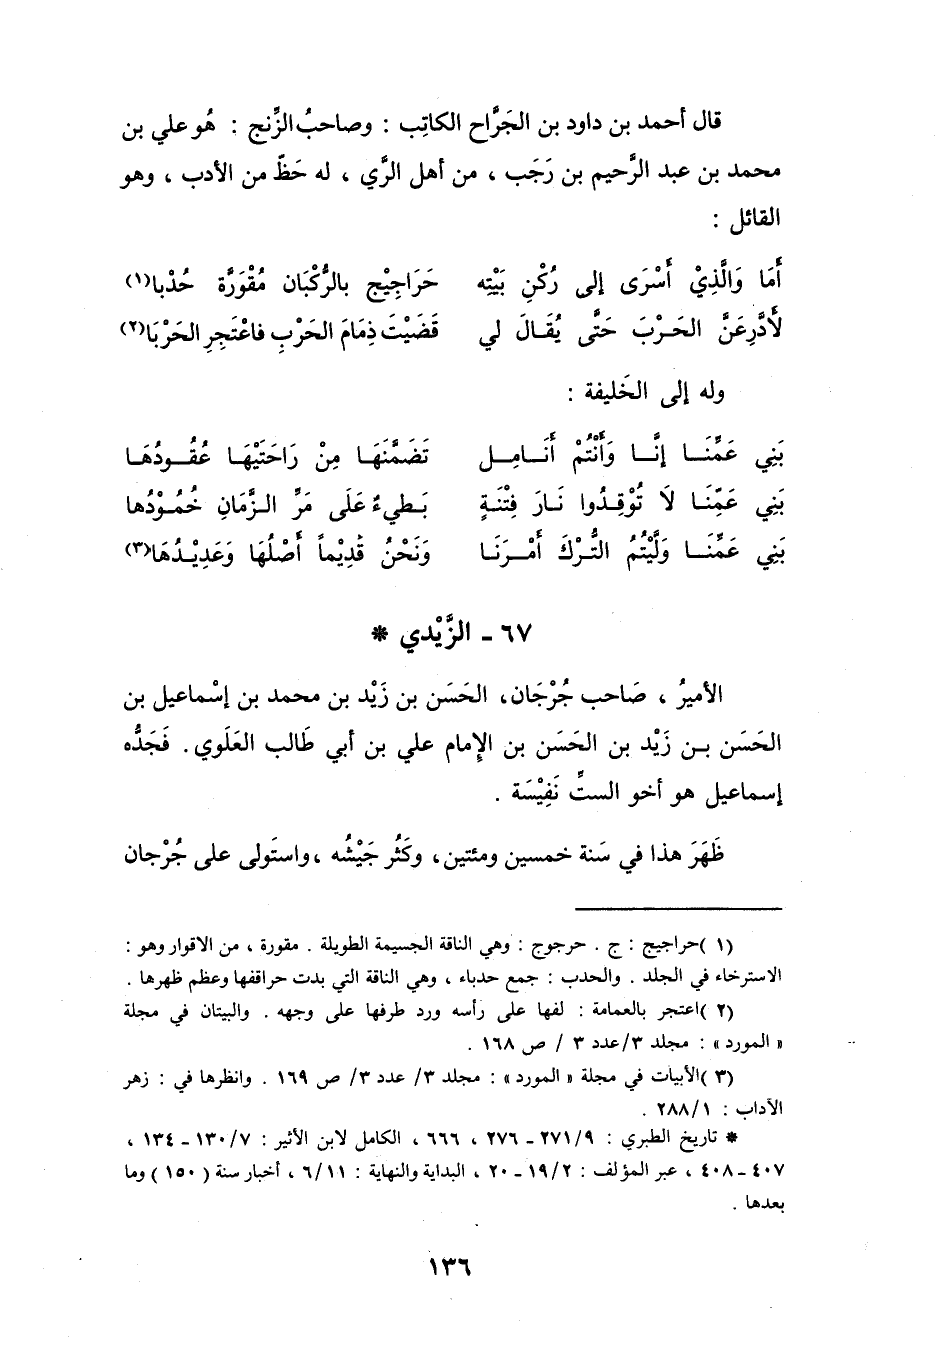 قال أحمد بن داود بن الجَرَّاح الكاتِب : وصاحبُ الزِّنج : هُو علي بن
محمد بن عبد الرَّحيم بن رَجَب ، من أهل الرَّي ، له حَظّ من الأدب ، وهو
القائل :
أَمَا وَالَّذِيْ أَسْرَى إلى رُكْنِ بَيْتِه حَرَاجِيْج بالرُّكْبَان مُقْوَرَّة حُدْبا(١)
لَأَدَّرِعَنَّ الحَرْبَ حَتَّى يُقَالَ لي قَضَيْتَ ذِمَامَ الحَرْبِ فاعْتَجِرِ الحَرْبَا(٢)
وله إلى الخَليفة :
بَنِي عَمِّنَا إنَّا وَأَنْتُمْ أَنَامِل تَضَمَّنَهَا مِنْ رَاحَتَيْهَا عُقُودُهَا
بَنِي عَمِّنَا لَا تُوْقِدُوا نَارَ فِتْنَةٍ بَطيءٌ عَلَى مَرِّ الزَّمَانِ خُمُوْدُها
بَنِي عَمِّنَا وَلَّيْتُمُ التُّرْكَ أَمْرَنَا وَنَحْنُ قَدِيْماً أَصْلُهَا وَعَدِيْدُهَا(٣)
٦٧ - الزَّيْدي *
الأميرُ ، صَاحب جُرْجَان، الحَسَن بن زَيْد بن محمد بن إسْماعيل بن
الحَسَن بن زَيْد بن الحَسَن بن الإمام علي بن أبي طَالب العَلَوي. فَجَدُّه
إسماعيل هو أخو الستِّ نَفِيْسَة .
ظَهَرَ هذا في سَنة خمسين ومئتين، وكَثُر جَيْشُه ،واستَولى على جُرْجان
(١ )حراجيج : ج . حرجوج : وهي الناقة الجسيمة الطويلة . مقورة ، من الاقوار وهو :
الاسترخاء في الجلد . والحدب : جمع حدباء ، وهي الناقة التي بدت حراقفها وعظم ظهرها .
(٢ )اعتجر بالعمامة : لفها على رأسه ورد طرفها على وجهه . والبيتان في مجلة
« المورد » : مجلد ٣/عدد ٣ / ص ١٦٨ .
(٣ )الأبيات في مجلة « المورد » : مجلد ٣/ عدد ٣/ ص ١٦٩ . وانظرها في : زهر
الآداب : ٢٨٨/١ .
* تاريخ الطبري : ٢٧١/٩ - ٢٧٦ ، ٦٦٦ ، الكامل لابن الأثير : ١٣٠/٧ - ١٣٤ ،
٤٠٧ - ٤٠٨ ، عبر المؤلف : ١٩/٢ - ٢٠ ، البداية والنهاية : ٦/١١ ، أخبار سنة ( ١٥٠ ) وما
بعدها .
١٣٦